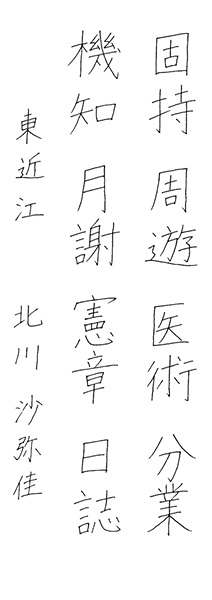 固持 周遊 医術 分業
機知 月謝 憲章 日誌
東近江 北川 沙弥佳